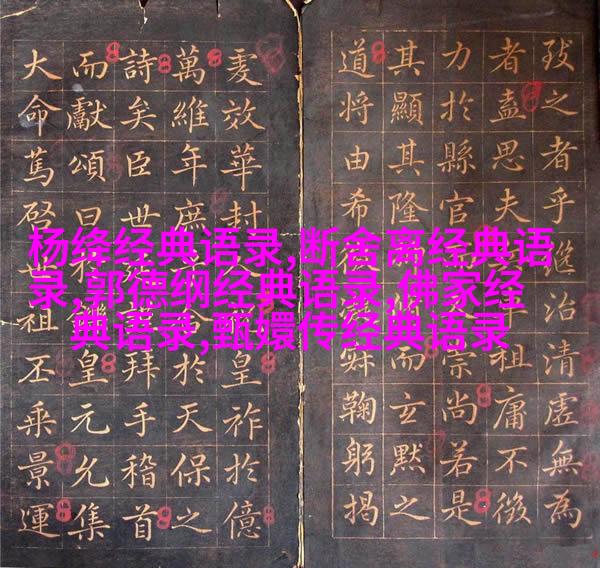 者乎
治清虛無為
者盍思夫
祖庸不
力於縣官
宗尚若是
其顯其隆
而玄默之
道將由希
鞠躬揭
爰效華封
皇祚於億
萬維年庶
於天保之
詩矣臣世
拜手稽首
而獻頌曰
皇元允集
大命篤啓世祖丕乘景運
杨绛经典语录,断舍离经典语
录,郭德纲经典语录,佛家经
典语录,甄嬛传经典语录